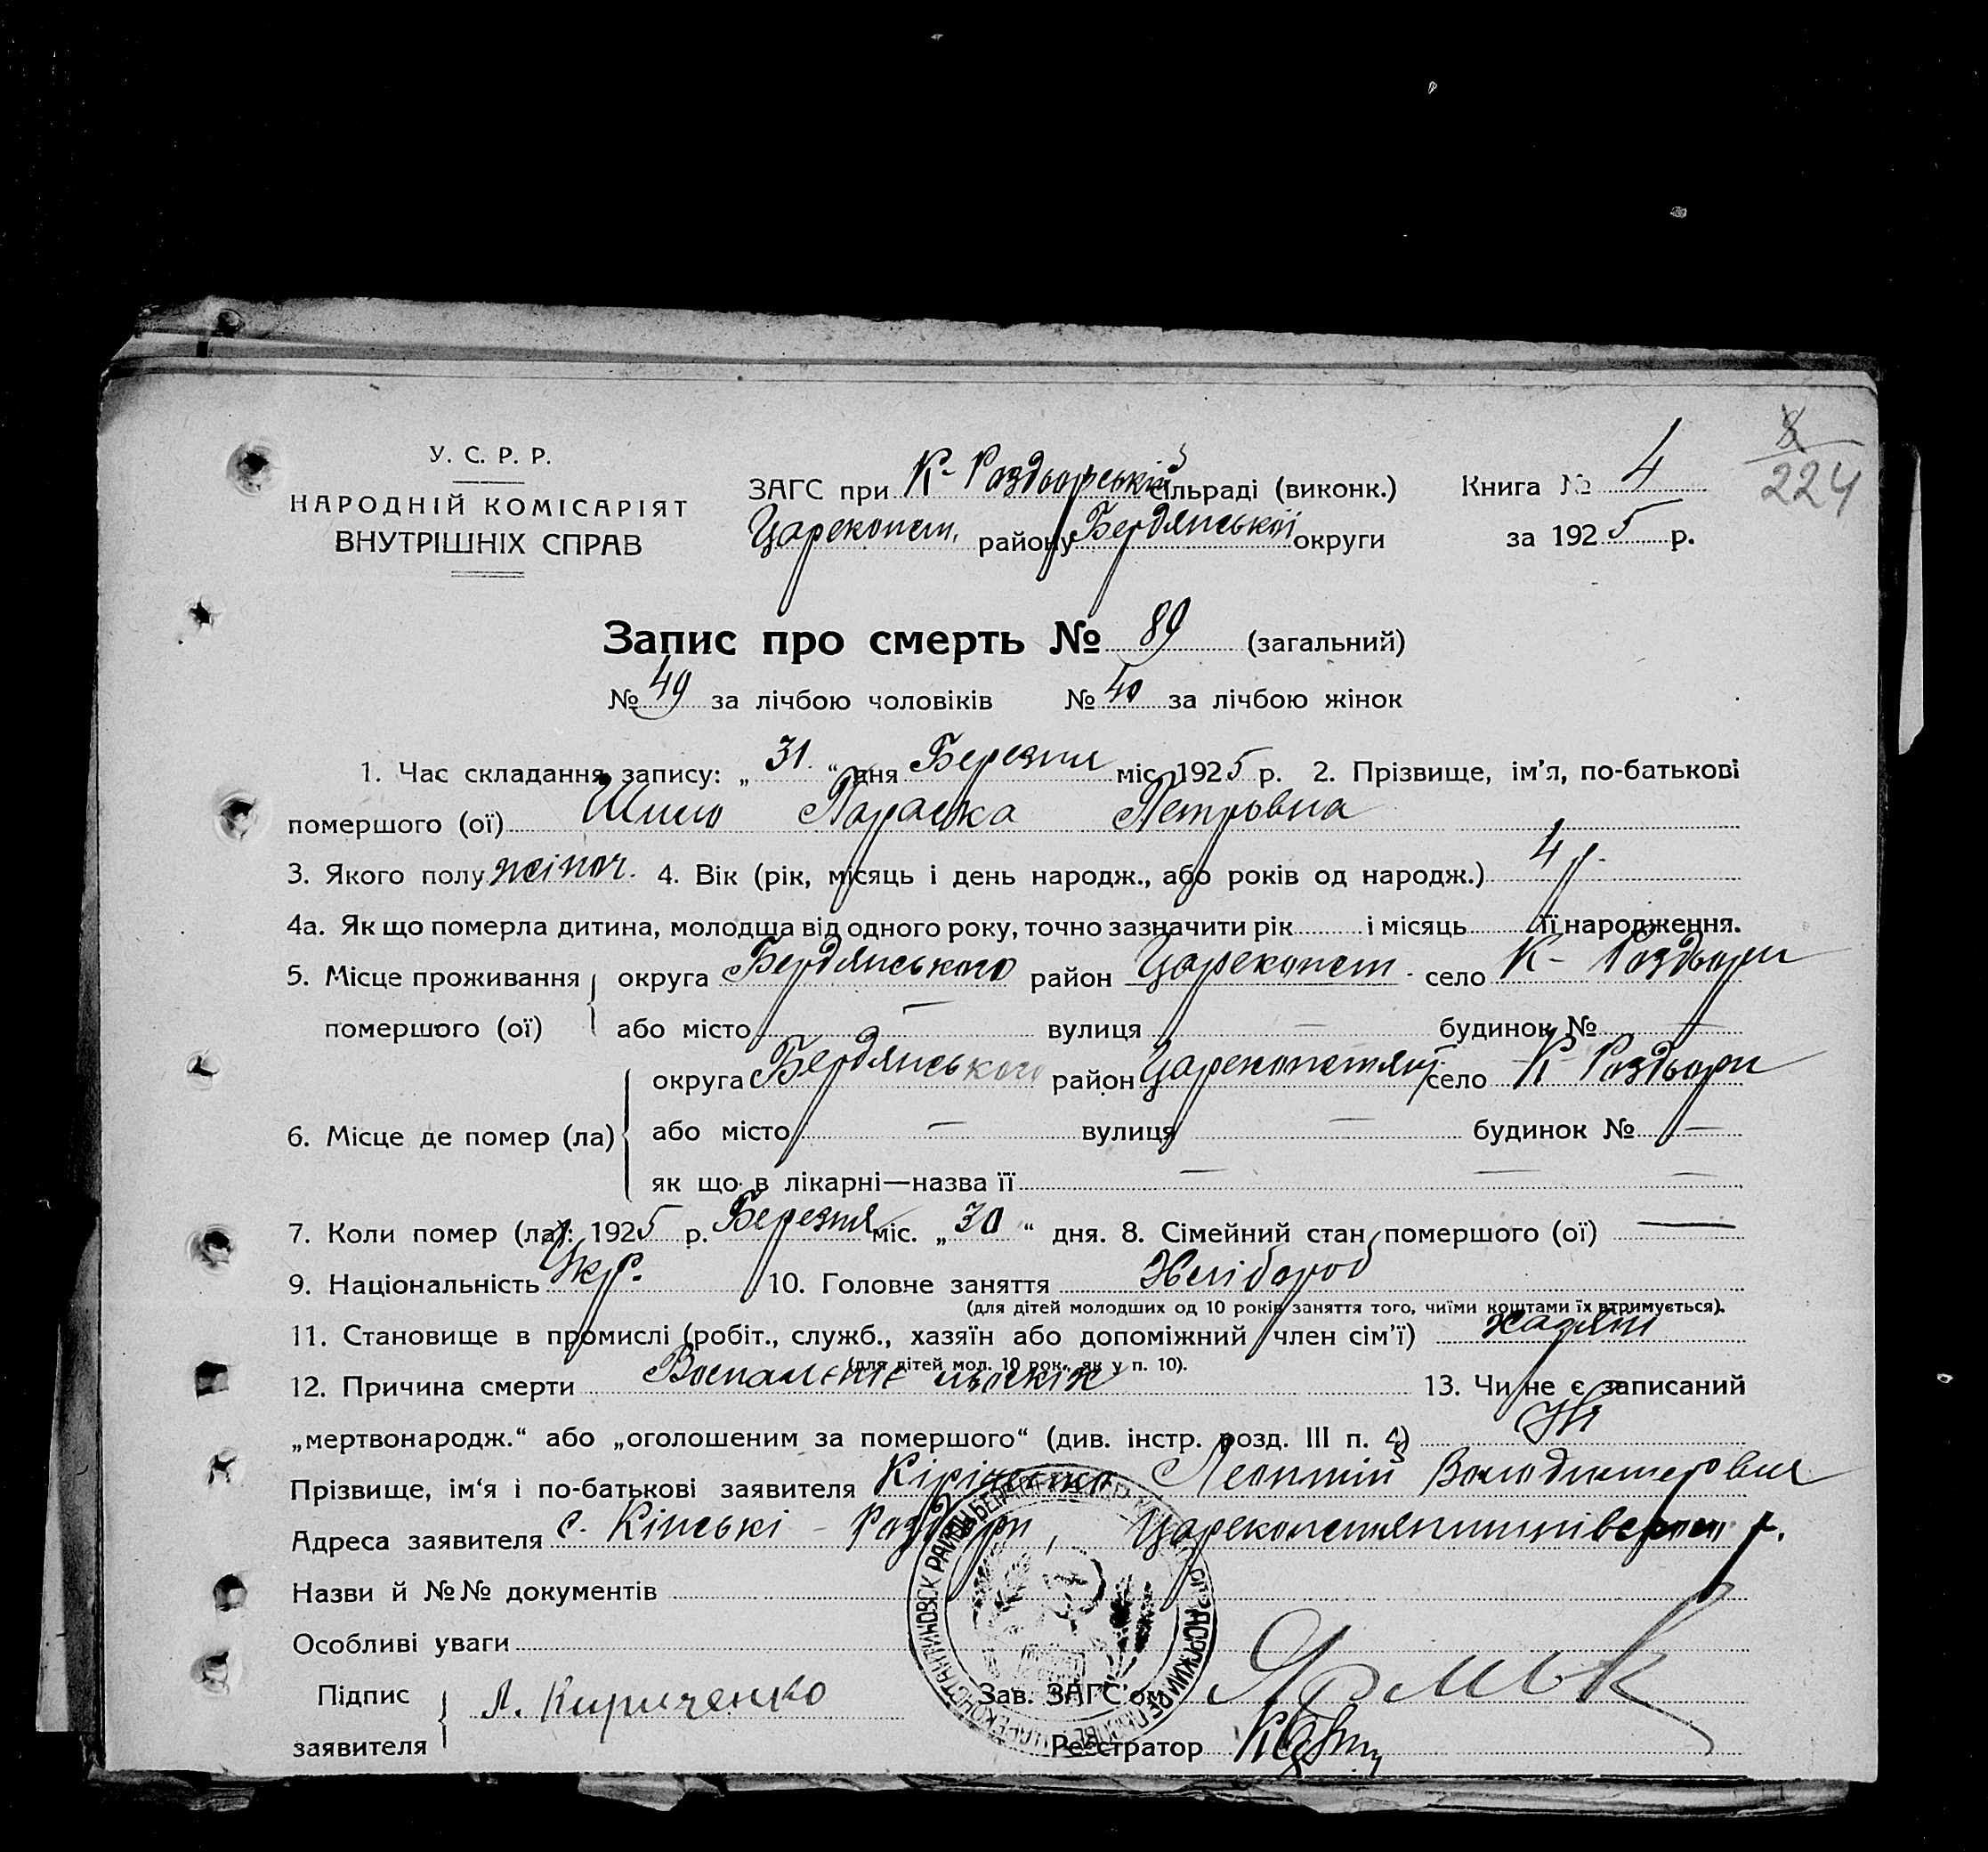 У. С. Р. Р.
НАРОДНІЙ КОМІСАРІЯТ
ВНУТРІШНІХ СПРАВ
ЗАГС при К-Роздорській сільраді (виконк.)
Царекопст. району Бердянської округи
Книга № 4
за 1925 р.
224
Запис про смерть № 89 (загальний)
№ 49 за лічбою чоловіків № 40 за лічбою жінок
1. Час складання запису: „31“ дня Березня міс. 1925 р. 2. Прізвище, ім’я, по-батькові
помершого (ої) Шило Параска Петровна
3. Якого полу жіноч. 4. Вік (рік, місяць і день народж., або років од народж.) 4 р.
4а. Як що померла дитина, молодща від одного року, точно зазначити рік і місяць її народження.
5. Місце проживання округа Бердянського район Царекопст. село К-Роздори
помершого (ої) або місто — вулиця — будинок № —
округа Бердянського район село К-Роздори
6. Місце де помер (ла) або місто — вулиця — будинок № —
як що в лікарні—назва її — — —
7. Коли помер (ла): 1925 р. Березня міс. „30“ дня. 8. Сімейний стан помершого (ої) —
9. Національність Укр. 10. Головне заняття Хлібороб
(для дітей молодших од 10 років заняття того, чиїми коштами їх втримується).
11. Становище в промислі (робіт., служб., хазяїн або допоміжний член сім’ї) хазяїн
(для дітей мол. 10 рок. як у п. 10).
12. Причина смерти Воспаленіє 13. Чи не є записаний
„мертвонародж.“ або „оголошеним за помершого“ (див. інстр. розд. III п. 4) Ні
Прізвище, ім‘я і по-батькові заявителя Кіріченко Леонтій
Адреса заявителя с. Кінські-Роздори, р.
Назви й №№ документів
Особливі уваги
Підпис заявителя Л. Кириченко
Зав. ЗАГС’ом
Реєстратор